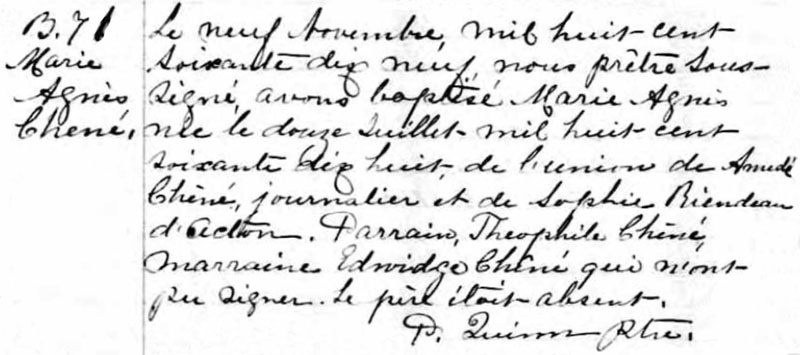 B. 71
Marie
Agnès
Chené.
Le neuf Novembre, mil huit-cent
soixante dix neuf, nous prêtre sous-
signé, avons baptisé Marie Agnès
née le douze Juillet mil huit cent
soixante dix huit, de l'union de Amedé
Chêné, journalier et de Sophie Riendeau
d'Acton. Parrain, Theophile Chêné,
marraine Edwidge Chêné qui n'ont
pu signer. Le père était absent.
P. Quinn Ptre.